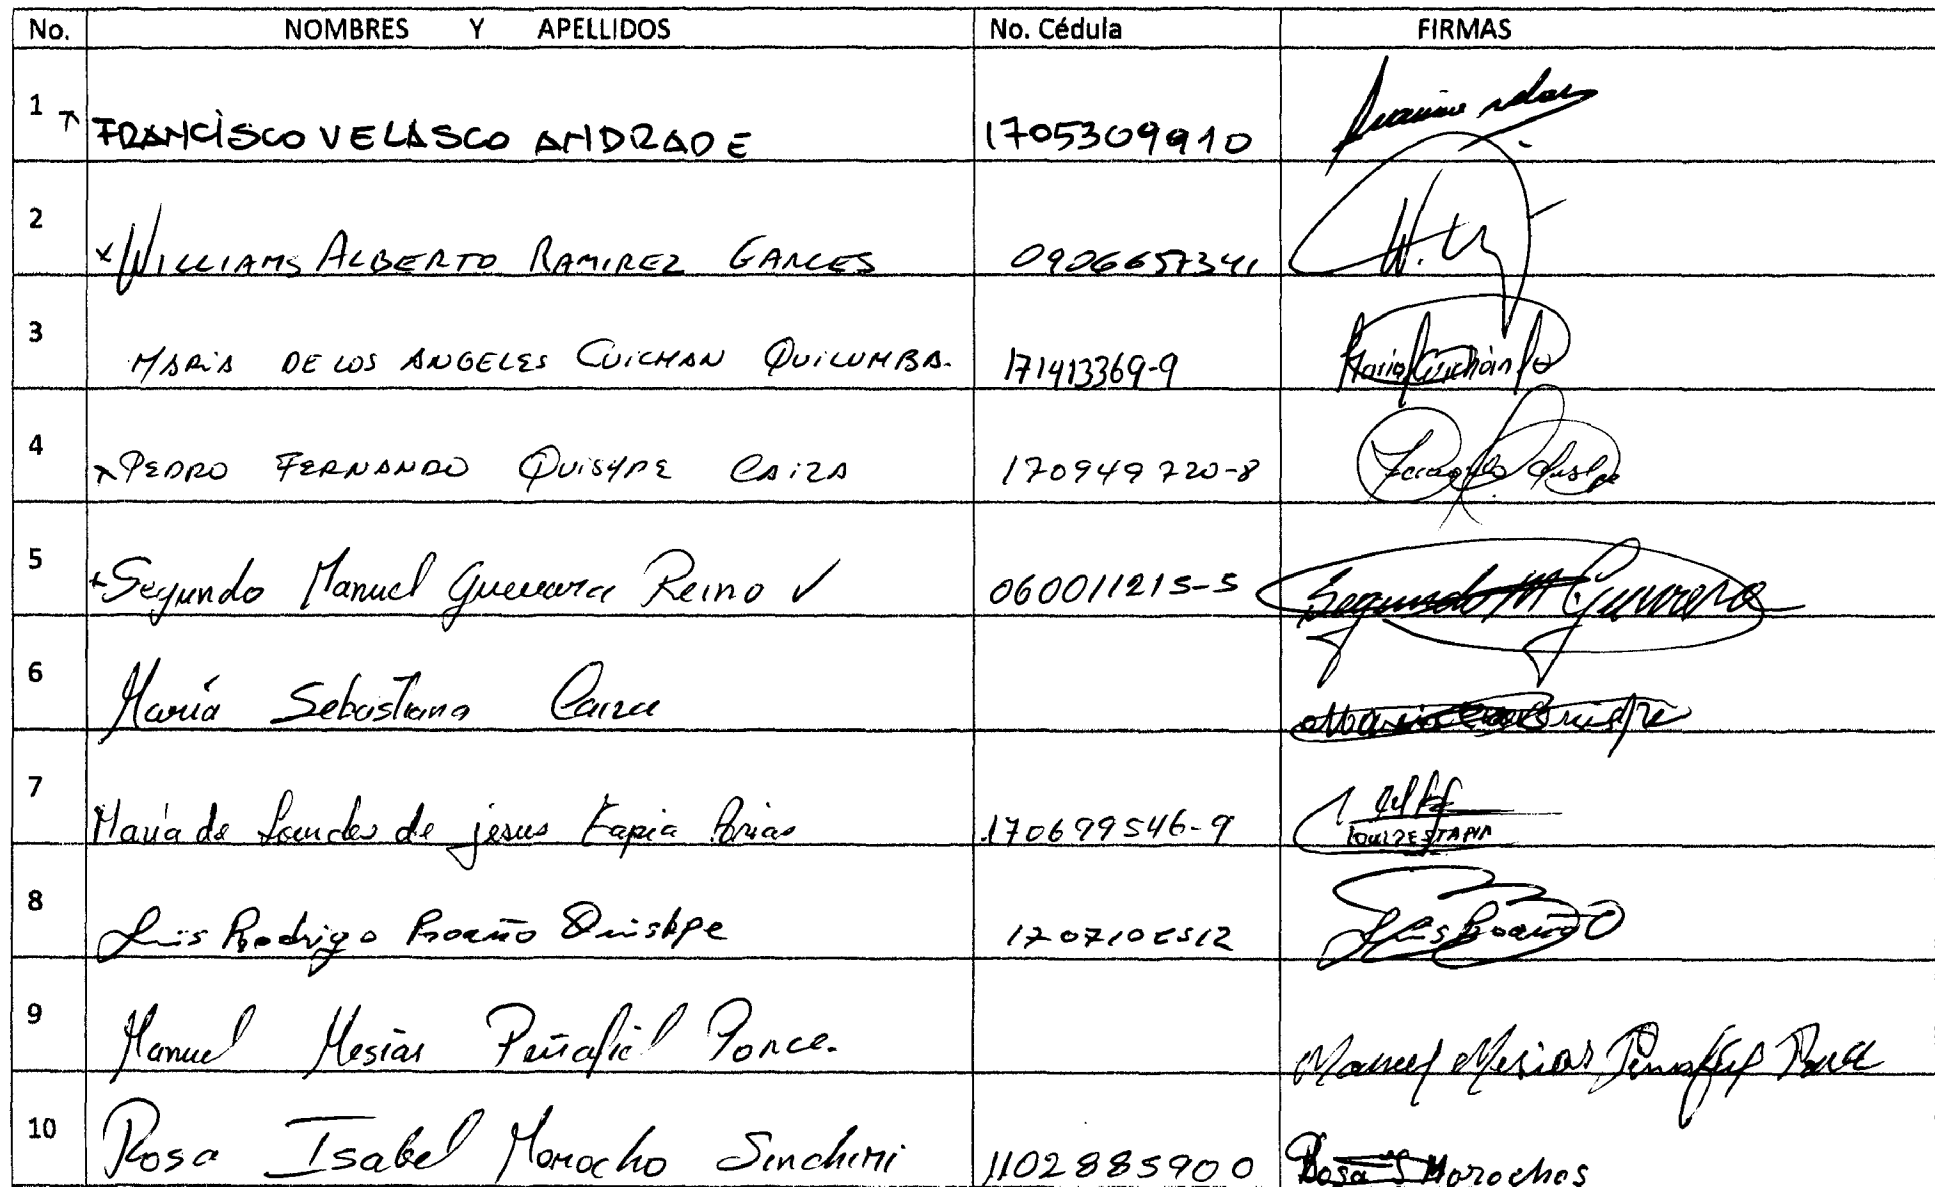 No. NOMBRES Y APELLIDOS No. Cédula FIRMAS
1 FRANCISCO VELASCO ANDRADE 1705309910
2 x WILLIAMS ALBERTO RAMIREZ GARCES 0906657341
3 MARIA DE LOS ANGELES CUICHAN QUILUMBA. 171413369-9 Maria Cuichan
4 PEDRO FERNANDO QUISHPE CAIZA 170949720-8
5 Segundo Manuel Guevara Reino ✓ 060011215-5 Segundo M
6 María Sebastiana Caiza
7 María de Lourdes de jesus Tapia Arias 170699546-9 LOURDES TAPIA
8 Luis Rodrigo Proaño Quishpe Luis Proaño
9 Manuel Mesías Peñafiel Ponce. Manuel Mesias Penafiel
10 Rosa Isabel Morocho Sinchiri 1102885900 Rosa Morochos